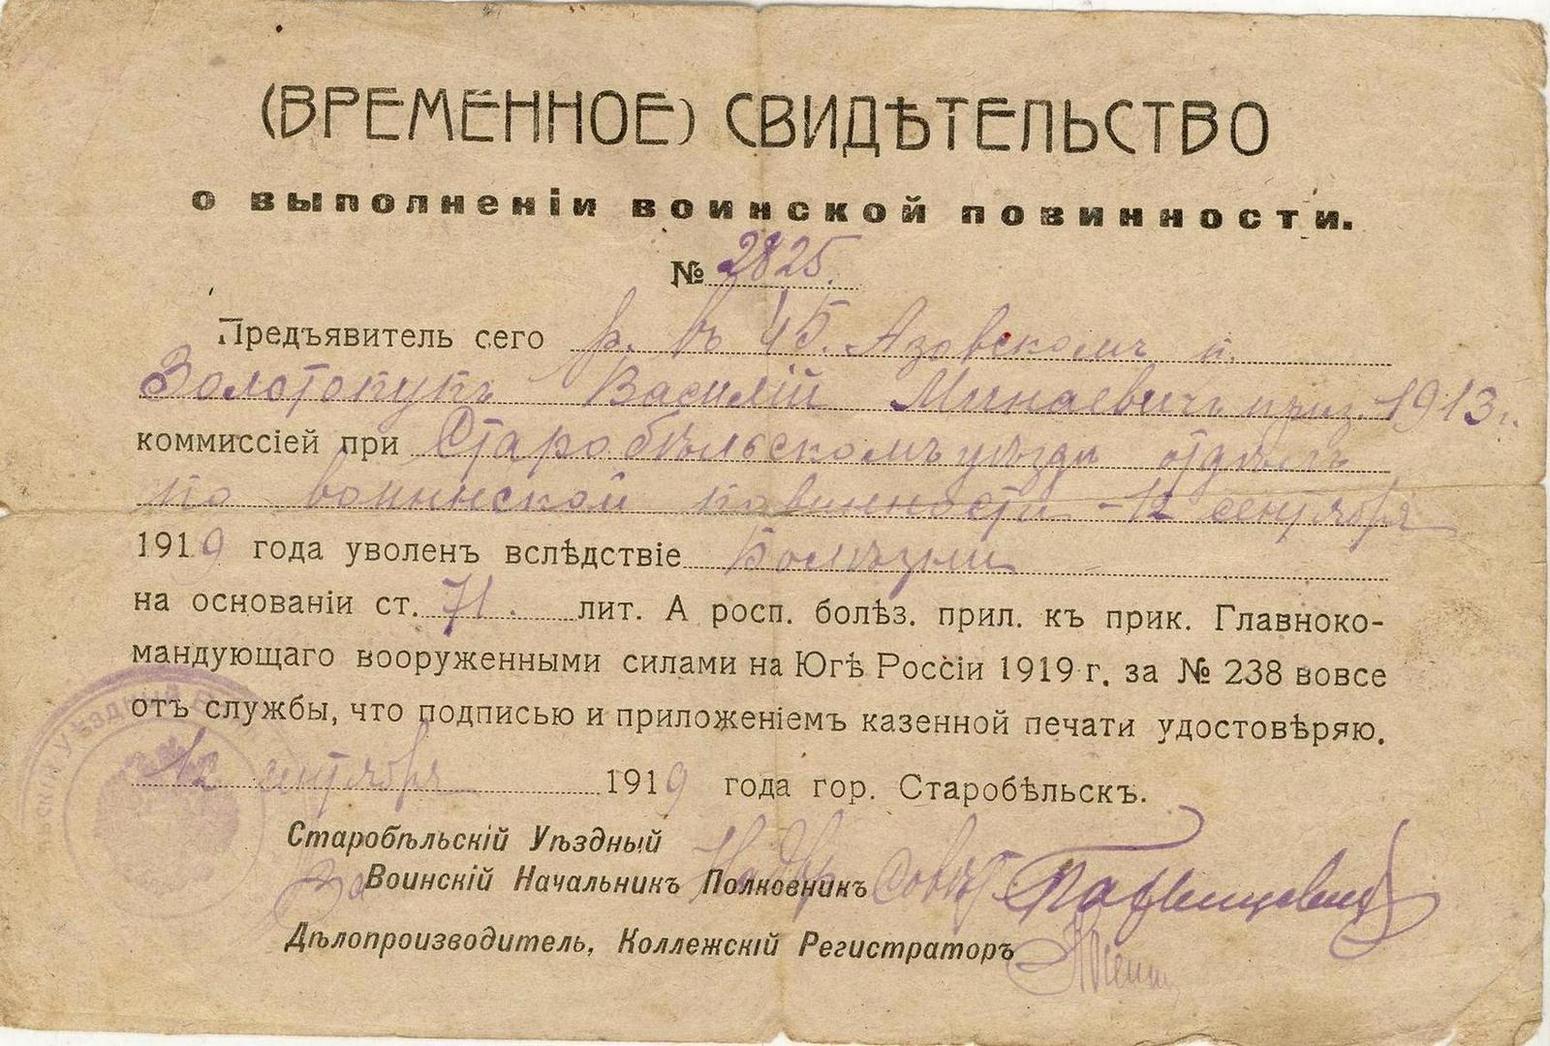 (ВРЕМЕННОЕ) СВИДѢТЕЛЬСТВО
о выполненіи воинской повинности.
№ 2825.
Предъявитель сего р. въ 45. Азовскомъ п.
Золотопупъ Василій Минаевичъ приз. 1913 г.
коммиссіей при Старобѣльскомъ уѣздн отдѣлѣ
по воинской повинности - 12 сентября
1919 года уволенъ вслѣдствіе Болѣзни
на основаніи ст. 71. лит. А росп. болѣз. прил. къ прик. Главноко-
мандующаго вооруженными силами на Югѣ Россіи 1919 г. за № 238 вовсе
отъ службы, что подписью и приложеніемъ казенной печати удостовѣряю.
12 сентября 1919 года гор. Старобѣльскъ.
Старобѣльскій Уѣздный
За Воинскій Начальникъ Полковникъ Надвор Совѣт
Дѣлопроизводитель, Коллежскій Регистраторъ
УѢЗДНЫЙ